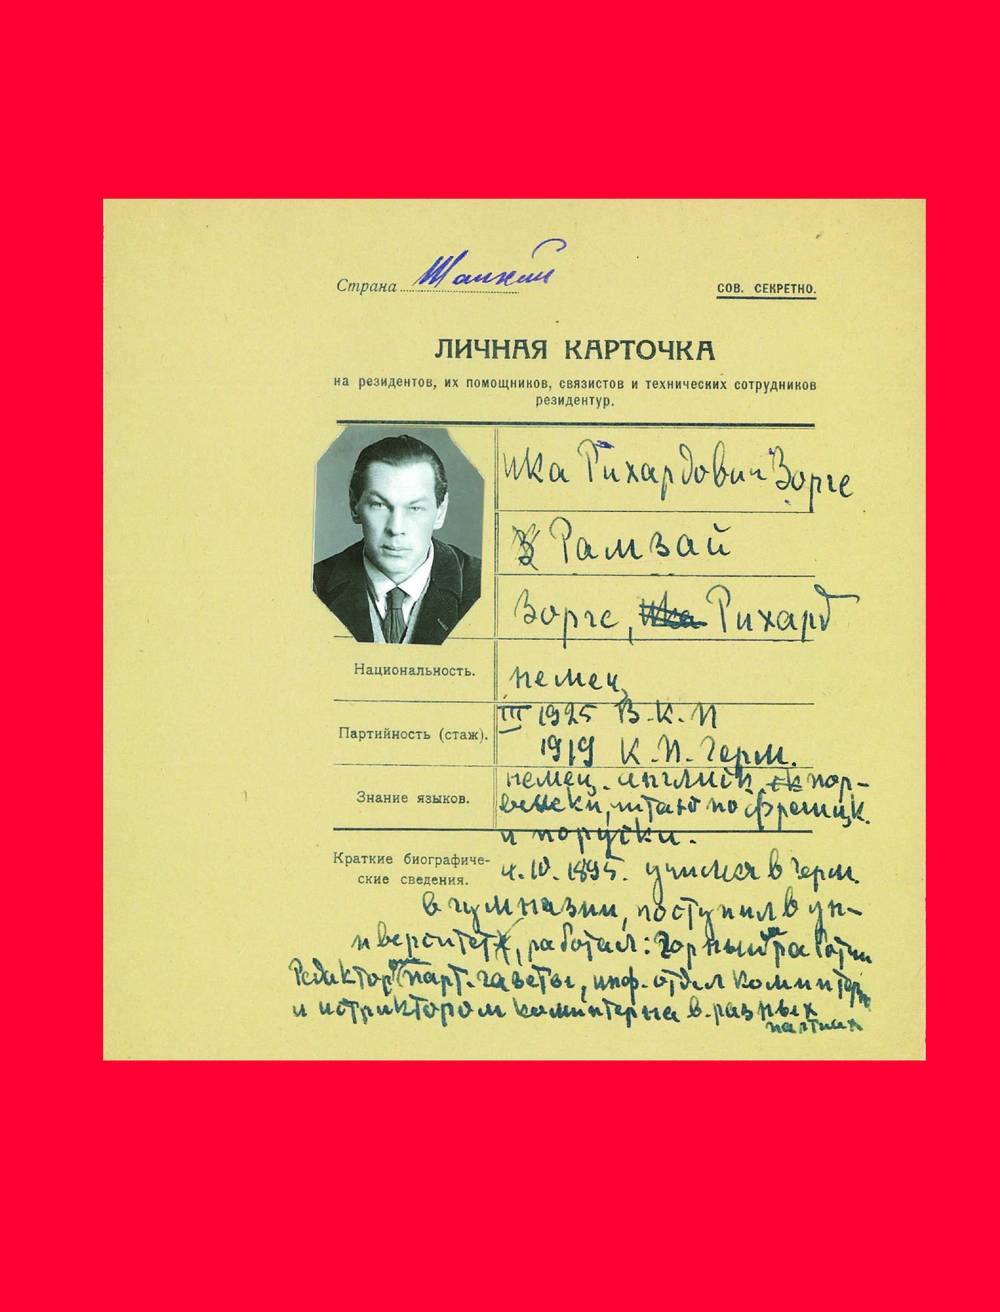 Страна Шанхай
СОВ. СЕКРЕТНО.
ЛИЧНАЯ КАРТОЧКА
на резидентов, их помощников, связистов и технических сотрудников
резидентур.
Ика Рихардович Зорге
Рамзай
Зорге, Ика Рихард
Национальность.
немец
Партийность (стаж).
III 1925 В.К.П
1919 К.П. Герм.
Знание языков.
немец. английск. нор-
вежски, читаю по француск.
и поруски.
Краткие биографиче-
ские сведения.
4.10.1895. учился в Герм.
в гумназии, поступил в ун-
иверситет, работал: горный
Редактор парт. газеты, инф. отдел коминтерн
и истриктором коминтерна в разных
партиях